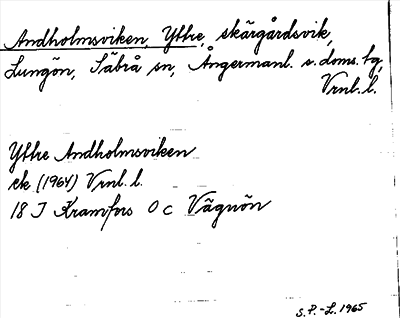 Andholmsviken, Yttre, skärgårdsvik,
Lungön, Säbrå sn, Ångermanl. s. doms. tg,
Vrnl. l.
Yttre Andholmsviken
ek (1964) Vrnl. l.
18 I Kramfors O c Vägnön
S.P.-L. 1965